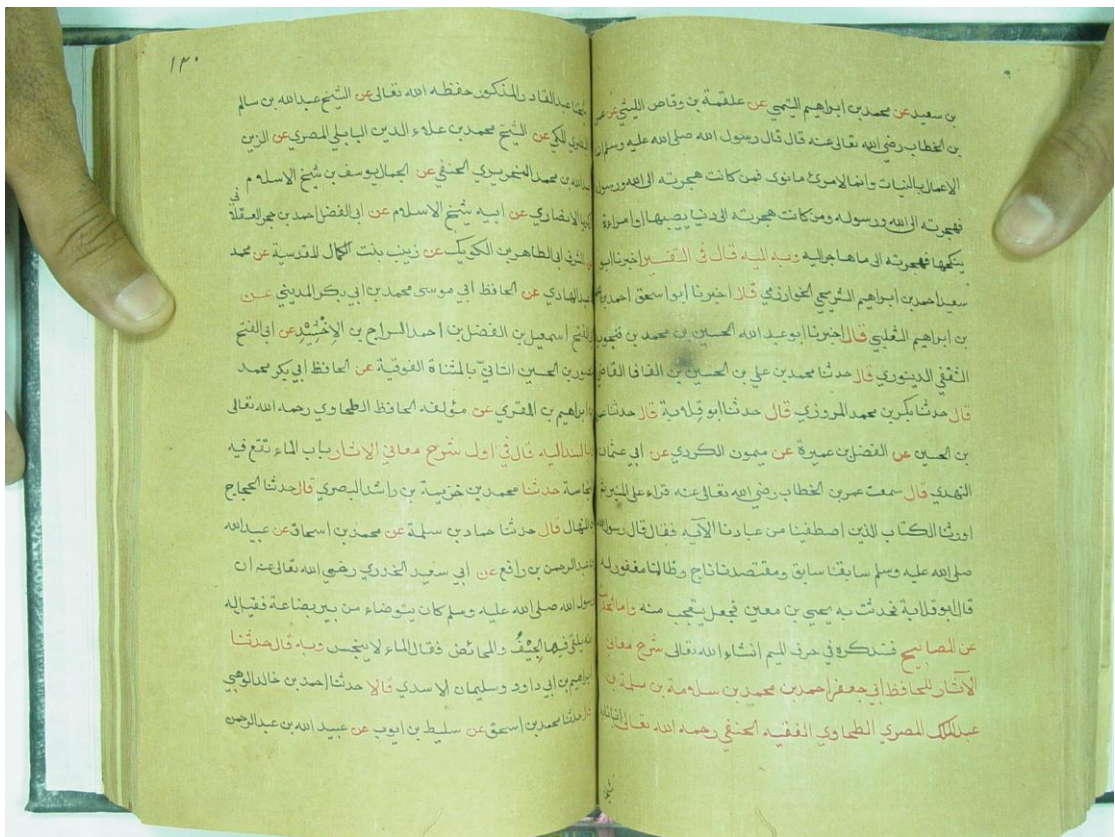 بن سعيد عن محمد بن ابراهيم التيمي عن علقمة بن وقاص الليثي عن
بن الخطاب رضي الله تعالى عنه قال قال رسول الله صلى الله عليه وسلم
الاعمال بالنيات وانما لامرئ مانوى فمن كانت هجرته الى الله ورسوله
فهجرته الى الله ورسوله ومن كانت هجرته الى دنيا يصيبها او امراءة
ينكحها فهجرته الى ما هاجر اليه وبه اليه قال في التفسير اخبرنا ابو
سعيد احمد بن ابراهيم الشريحي الخوارزمي قال اخبرنا ابو اسحق احمد بن
بن ابراهيم الثعلبي قال اخبرنا ابو عبد الله الحسين بن محمد بن فنجويه
الثقفي الدينوري قال حدثنا محمد بن علي بن الحسين بن القافا القاضي
قال حدثنا بكر بن محمد المروزي قال حدثنا ابو قلابة قال حدثنا
بن الحسين عن الفضل بن عميرة عن ميمون الكردي عن ابي عثمان
النهدي قال سمعت عمر بن الخطاب رضي الله تعالى عنه قراء على المنبر ثم
اورثنا الكتاب الذين اصطفينا من عبادنا الآية فقال قال رسول الله
صلى الله عليه وسلم سابقنا سابق ومقتصدنا ناج وظالمنا مغفور له
قال ابو قلابة فحدثت به يحيى بن معين فجعل يتعجب منه واما
عن المصابيح فستذكره في حرف الميم انشاء الله تعالى شرح معاني
الآثار للحافظ ابي جعفر احمد بن محمد بن سلامة بن سلمة بن
عبد الملك المصري الطحاوي الفقيه الحنفي رحمه الله تعالى
١٣٠
عبد القادر المذكور حفظه الله تعالى عن الشيخ عبد الله بن سالم
البصري المكي عن الشيخ محمد بن علاء الدين البابلي المصري عن الزين
عبد الله بن محمد النحريري الحنفي عن الجمال يوسف بن شيخ الاسلام
زكريا الانصاري عن ابيه شيخ الاسلام عن ابي الفضل احمد بن حجر العسقلاني
عن الشرف ابي الطاهر بن الكويك عن زينب بنت الكمال المقدسية عن محمد
بن عبد الهادي عن الحافظ ابي موسى محمد بن ابي بكر المديني عن
ابي الفتح اسمعيل بن الفضل بن احمد السراج بن الإخشيد عن ابي الفتح
منصور بن الحسين التاني بالمثناة الفوقية عن الحافظ ابي بكر محمد
بن ابراهيم بن المقري عن مؤلفه الحافظ الطحاوي رحمه الله تعالى
السند اليه قال في اول شرح معاني الاثار باب الماء تقع فيه
نجاسة حدثنا محمد بن خزيمة بن راشد البصري قال حدثنا الحجاج
بن المنهال قال حدثنا حماد بن سلمة عن محمد بن اسحاق عن عبيد الله
بن عبد الرحمن بن رافع عن ابي سعيد الخدري رضي الله تعالى عنه ان
رسول الله صلى الله عليه وسلم كان يتوضاء من بير بضاعة فقيل له
انه يلقى فيها الجيف والمحائض فقال الماء لا ينجس وبه قال حدثنا
ابراهيم بن ابي داود وسليمان الاسدي قالا حدثنا احمد بن خالد الوهبي
قال حدثنا محمد بن اسحق عن سليط بن ايوب عن عبيد الله بن عبد الرحمن